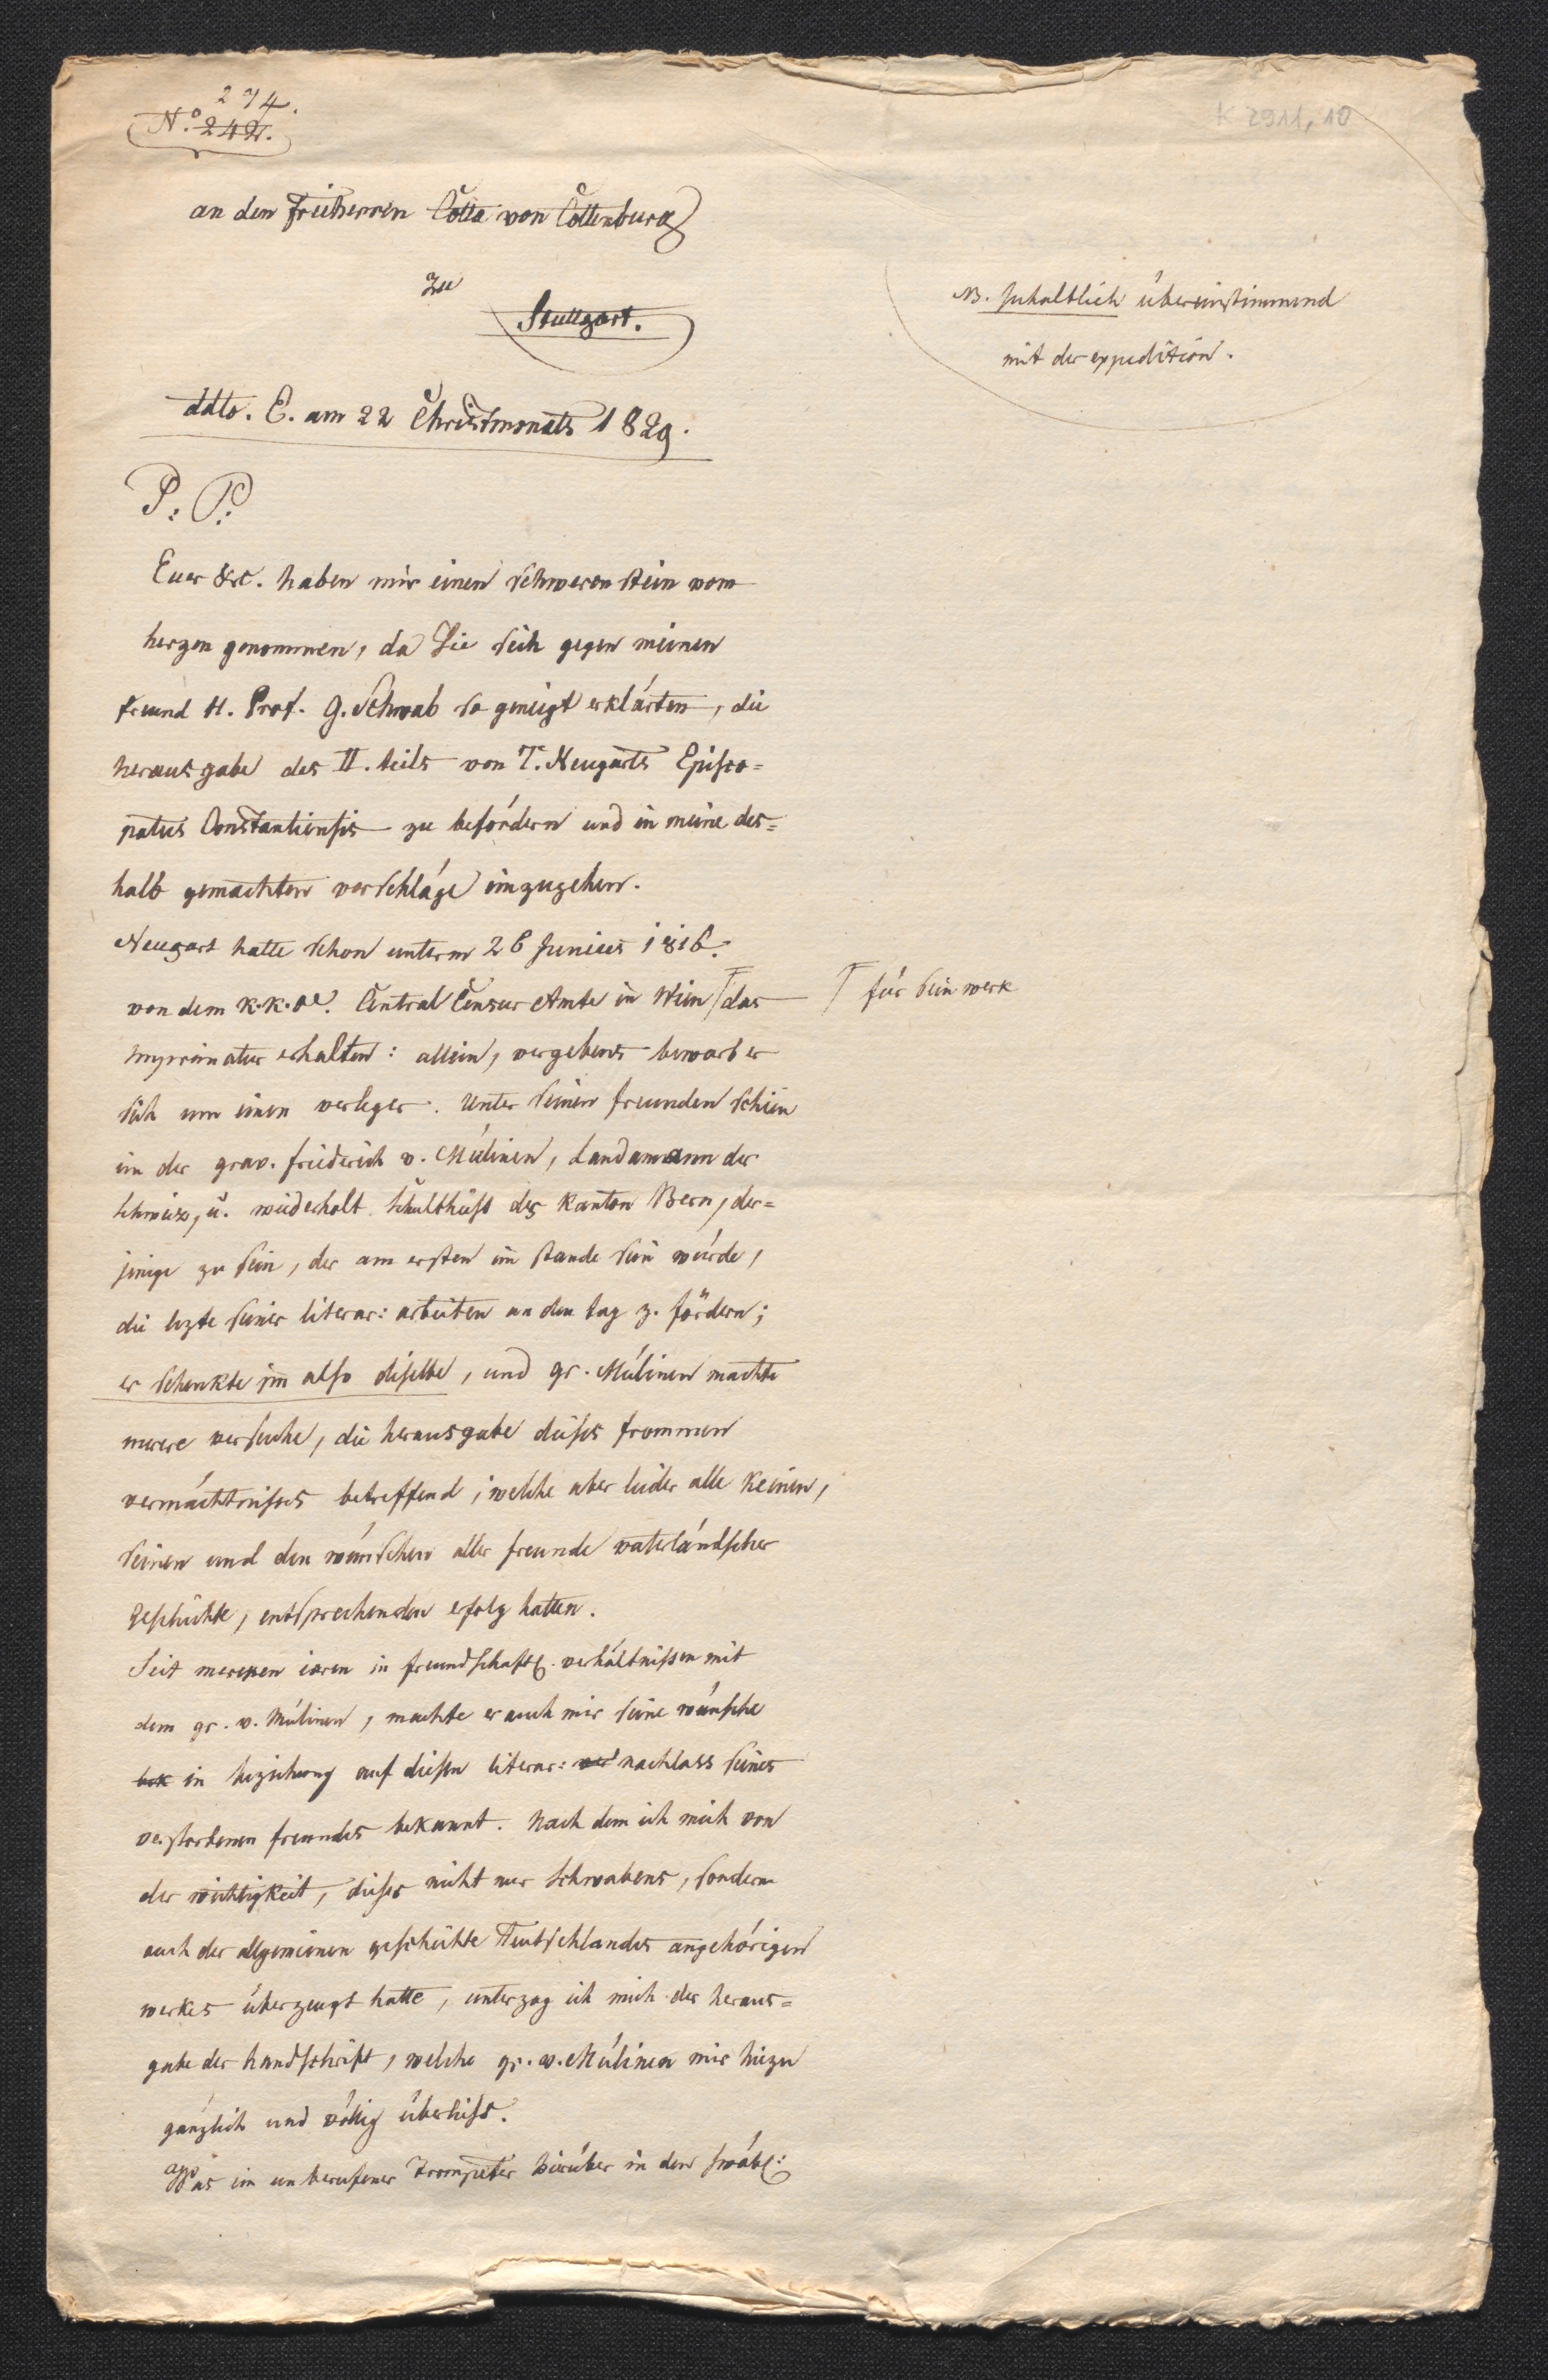 274.
N.° 242.
K 2911,10
an den Freiherren Cotta von Cottenburg
zu
Stuttgart.
NB. Inhaltlich übereinstimmend
mit der expedition.
ddto. E. am 22 Christmonats 1829.
P. P.
Euer &c. haben mir einen schweren stein vom
herzen genommen, da Sie sich gegen meinen
freund H. Prof. G. Schwab so geneigt erklärten, die
herausgabe des II. teils von T. Neugarts Episco=
patus Constantiensis zu befördern und in meine des=
halb gemachten verschläge einzugehen.
Neugart hatte schon unterm 26 Junius 1816.
von dem k. k. Central Censur Amte in Wien das
für sein werk
Imprimatur erhalten: allein, vergebens bewarb er
sich um einen verleger. Unter seinen freunden schien
im der grav. friederich v. Mülinen, Landamann der
Schweiz, u. wiederholt Schultheiss des Kanton Bern, der=
jenige zu sein, der am ersten im stande sein würde,
die lezte seiner literar: arbeiten an den tag z. fördern;
er schenkte im also dieselbe, und gr. Mülinen machte
merere versuche, die herausgabe dieses frommen
vermächtnisses betreffend, welche aber leider alle keinen,
seinen und den wünschen aller freunde vaterländscher
Geschichte, entsprechenden erfolg hatten.
Seit mereren iaren in freundschaftl. verhältnissen mit
dem gr. v. Mülinen, machte er auch mir seine wünsche
in beziehung auf diesen literar: nachlass seines
verstorbenen freundes bekannt. Nach dem ich mich von
der wichtigkeit, dieses nicht nur Schwabens, sondern
auch der allgemeinen geschichte Teutschlandes angehörigen
werkes überzeugt hatte, unterzog ich mich der heraus=
gabe der handschrift, welche gr. v. Mülinen mir hiezu
gänzlich und völlig überliess.
Was ein unberufener Trompeter hierüber in den swäb: